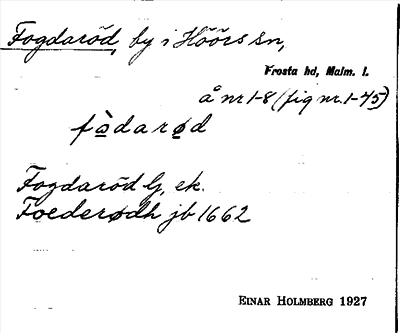 Fogdaröd, by i Höörs sn,
Frosta hd, Malm. l.
å nr 1-8 (fig nr. 1-45)
fòdarød
Fogdaröd G, ek.
Foederødh jb 1662
EINAR HOLMBERG 1927